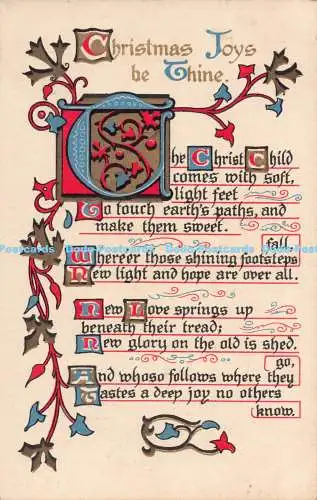 Christmas Joys
be Thine.
The Christ Child
comes with soft,
light feet
To touch earth's paths, and
make them sweet.
fall,
Whereer those shining footsteps
New light and hope are over all.
New Love springs up
beneath their tread;
New glory on the old is shed.
go,
And whoso follows where they
Tastes a deep joy no others
know.